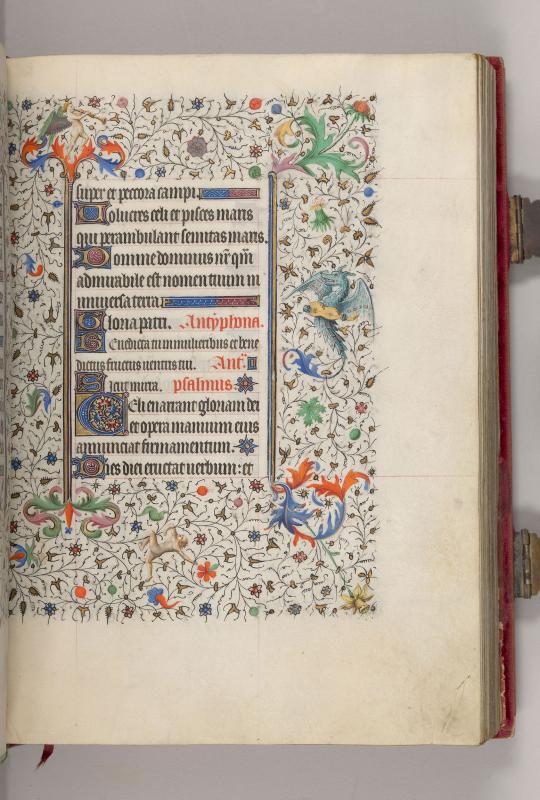 super et pecora campi.
Volucres celi et pisces maris
qui perambulant semitas maris.
Domine dominus nr̄ qm̄
admirabile est nomen tuum in
universa terra.
Gloria patri. Antyphona.
Benedicta tu in mulieribus et bene
dictus fructus ventris tui. Ant̄.
Sicut mirra. psalmus.
Celi enarrant gloriam dei
et opera manuum eius
annunciat firmamentum.
Dies diei eructat verbum: et